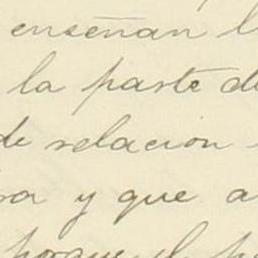 enseñan l
la parte de
de relacion
ra y que a
porque el p